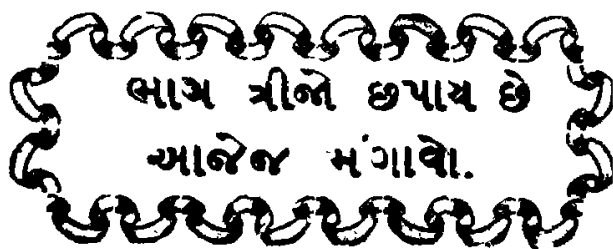 ભાગ ત્રીજો છપાય છે
આજેજ મંગાવો.